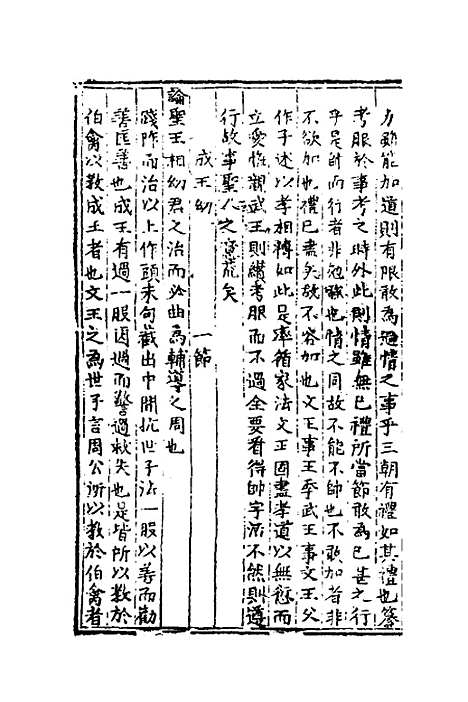 力雖能加道則有限敢為過情之事乎三朝有禮如其禮也纂
考服於事考之時外此則情雖無已禮所當節敢為已甚之行
乎是帥而行者非勉強也情之同故不能不帥也不敢加者非
不欲加也禮已盡矣故不容加也文王事王季武王事文王父
作子述以孝相傳如此是率循家法文王固盡孝道以無愆而
立愛惟親武王則纘考服而不過全要看得帥字活不然則遵
行故事聖人之意荒矣
成王幼 一節
論聖王相幼君之治而必曲為輔導之周也
踐阼而治以上作頭末句截出中開抗世子法一股以善而勸
善匡善也成王有過一股因過而警過救失也是皆所以教於
伯禽以教成王者也文王之為世子言周公所以教於伯禽者